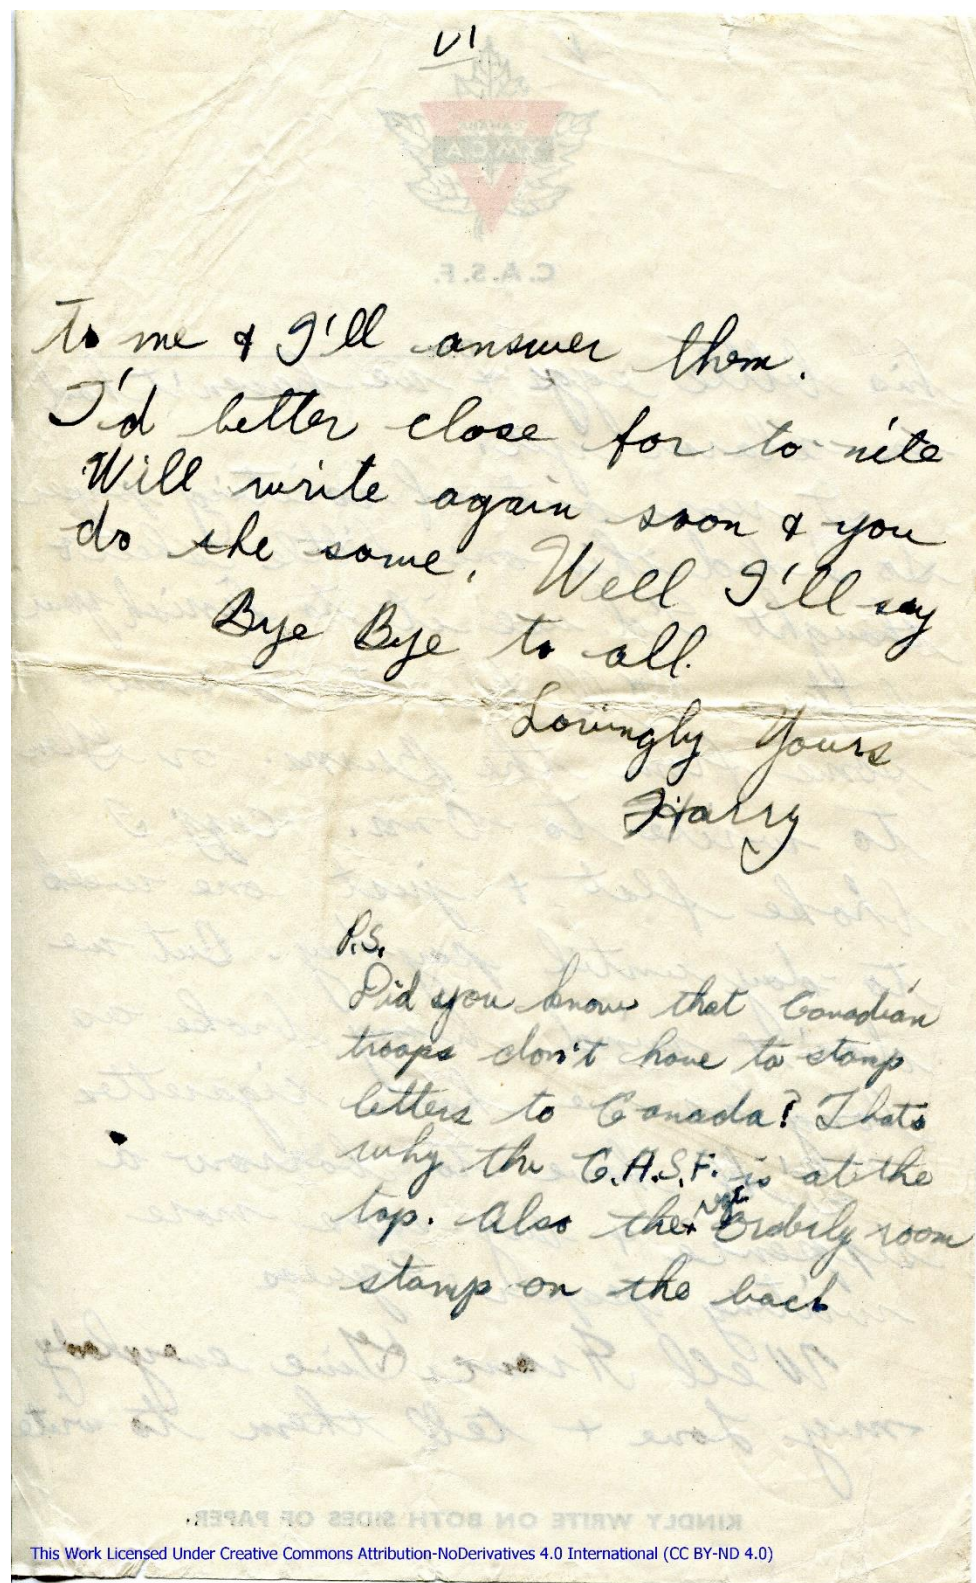 VI
to me & I'll answer them.
I'd better close for to-nite
Will write again soon & you
do the same. Well I'll say
Bye Bye to all.
Lovingly Yours
Harry
P.S.
Did you know that Canadian
troops don't have to stamp
letters to Canada? Thats
why the C.A.S.F. is at the
top. Also the Orderly room
stamp on the back
C.A.S.F.
Y.M.C.A.
KINDLY WRITE ON BOTH SIDES OF PAPER.
This Work Licensed Under Creative Commons Attribution-NoDerivatives 4.0 International (CC BY-ND 4.0)